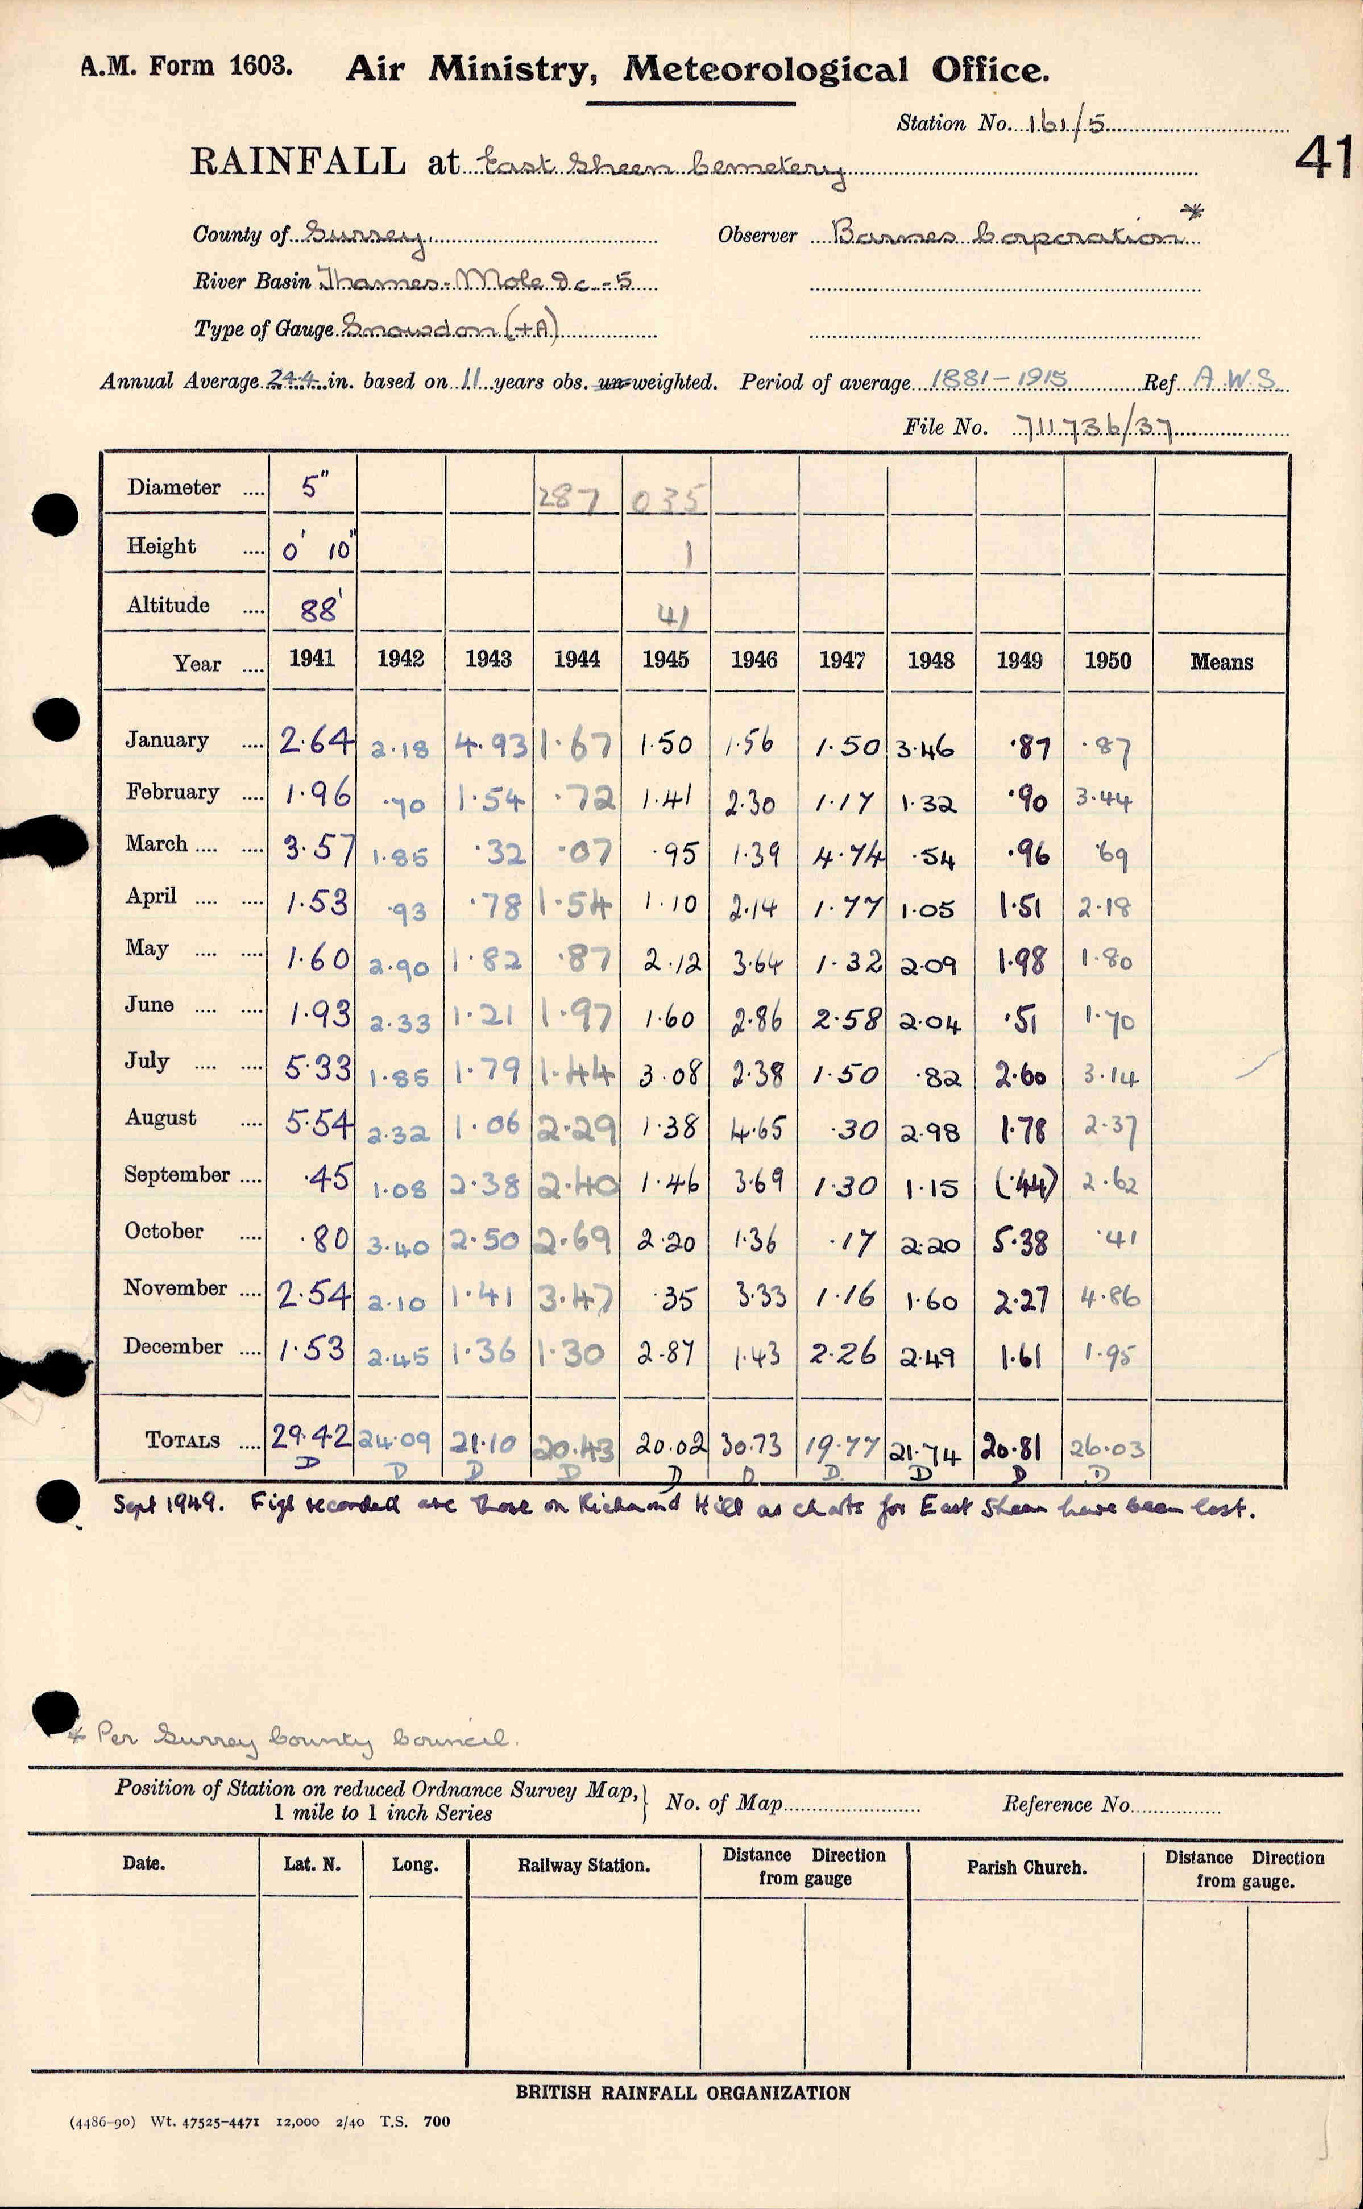 A.M. Form 1603. Air Ministry, Meteorological Office.
Station No. 161/5
41
RAINFALL at East Sheen Cemetery
County of Surrey. Observer Barnes Corporation *
River Basin Thames-Mole &c -5
Type of Gauge Snowdon (+A)
Annual Average 24.4 in. based on 11 years obs. un-weighted. Period of average 1881-1915 Ref A.W.S.
File No. 711736/37
Diameter .... 5" 287 035
Height .... 0' 10" 1
Altitude .... 88' 41
Year .... 1941 1942 1943 1944 1945 1946 1947 1948 1949 1950 Means
January .... 2.64 2.18 4.93 1.67 1.50 1.56 1.50 3.46 .87 .87
February .... 1.96 .70 1.54 .72 1.41 2.30 1.17 1.32 .90 3.44
March .... .... 3.57 1.85 .32 .07 .95 1.39 4.74 .54 .96 .69
April .... .... 1.53 .93 .78 1.54 1.10 2.14 1.77 1.05 1.51 2.18
May .... .... 1.60 2.90 1.82 .87 2.12 3.64 1.32 2.09 1.98 1.80
June .... .... 1.93 2.33 1.21 1.97 1.60 2.86 2.58 2.04 .51 1.70
July .... .... 5.33 1.85 1.79 1.44 3.08 2.38 1.50 .82 2.60 3.14
August .... 5.54 2.32 1.06 2.29 1.38 4.65 .30 2.98 1.78 2.37
September .... .45 1.08 2.38 2.40 1.46 3.69 1.30 1.15 (.44) 2.62
October .... .80 3.40 2.50 2.69 2.20 1.36 .17 2.20 5.38 .41
November .... 2.54 2.10 1.41 3.47 .35 3.33 1.16 1.60 2.27 4.86
December .... 1.53 2.45 1.36 1.30 2.87 1.43 2.26 2.49 1.61 1.95
TOTALS .... 29.42 24.09 21.10 20.43 20.02 30.73 19.77 21.74 20.81 26.03
D D D D D D D D D D
Sept 1949. Figs recorded are those on Richmond Hill as charts for East Sheen have been lost.
* Per Surrey County Council.
Position of Station on reduced Ordnance Survey Map,} No. of Map Reference No.
1 mile to 1 inch Series
Date. Lat. N. Long. Railway Station. Distance Direction from gauge Parish Church. Distance Direction from gauge.
BRITISH RAINFALL ORGANIZATION
(4486-90) Wt. 47525-4471 12,000 2/40 T.S. 700